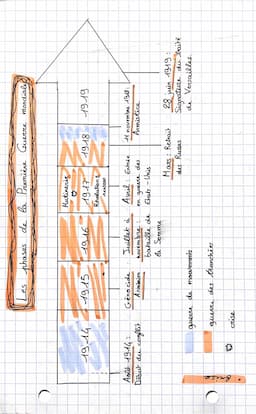 Les phases de la Première Guerre mondiale
1914
1915
1916
1917
1918
1919
Mutineries
Révolutions
russes
Août 1914 :
Début des conflits
Génocide
Arménien
Juillet à
novembre :
bataille de
la Somme
Avril : Entrée
en guerre des
Etats-Unis
11 novembre 1918 :
Armistice
Mars : Retrait
des Russes
28 juin 1919 :
Signature du Traité
de Versailles
guerre de mouvements
guerre des tranchées
crise